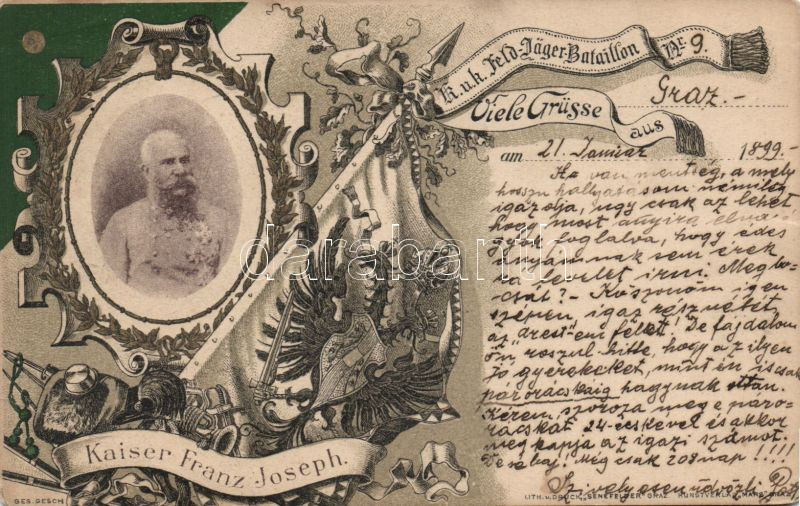 K.u.k. Feld-Jäger-Bataillon Nr. 9.
Viele Grüsse aus Graz.-
am 21. Januar 1899.-
Ha van mentség, a mely
hosszu hallgatásom némileg
igazolja, ugy csak az lehet
hogy most annyira
foglalva, hogy édes
anyámnak sem érek
rá levelet irni. Megbo-
csát? - Köszönöm igen
szépen, igaz részvétét
az "arest"-emi félet! De fájdalom
ön roszul hitte, hogy az ilyen
jo gyerekeket, mint én, is csak
párorácskáig hagynak ottan.
Kérem szorozza meg e páro-
rácskát 24-ecskével és akkor
megkapja az igazi számot.
De sebaj! Még csak 208 nap!!!!
Szivélyesen üdvözli
Kaiser Franz Joseph.
GES. GESCH.
LITH. u. DRUCK „SENEFELDER" GRAZ KUNSTVERLAG „MARS" GRAZ
darabanth